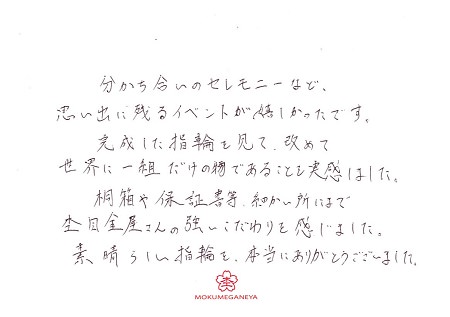 分かち合いのセレモニーなど、
思い出に残るイベントが嬉しかったです。
完成した指輪を見て、改めて
世界に一組だけの物であることを実感しました。
桐箱や保証書等、細かい所にまで
杢目金屋さんの強いこだわりを感じました。
素晴らしい指輪を、本当にありがとうございました。
MOKUMEGANEYA